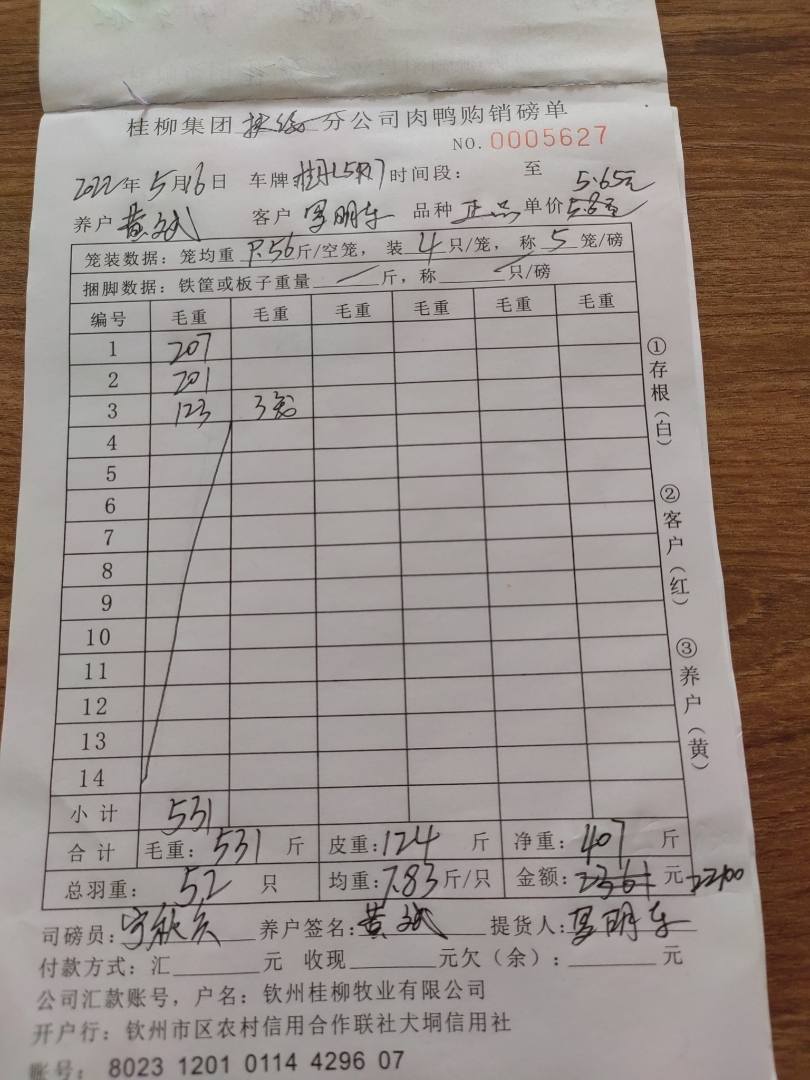 桂柳集团 分公司肉鸭购销磅单
NO. 0005627
2022年5月16日 车牌 时间段： 至
5.65元
养户 黄斌 客户 罗明东 品种 正品 单价 5.8元
笼装数据：笼均重 9.56斤/空笼，装 4 只/笼，称 5 笼/磅
捆脚数据：铁筐或板子重量 斤，称 只/磅
编号 毛重 毛重 毛重 毛重 毛重 毛重
1 207
2 201
3 123 3笼
4
5
6
7
8
9
10
11
12
13
14
小计 531
合计 毛重：531 斤 皮重：124 斤 净重：407 斤
总羽重： 52 只 均重：7.83斤/只 金额：2361 元 2200
司磅员： 养户签名：黄斌 提货人：罗明东
付款方式：汇 元 收现 元欠（余）： 元
公司汇款账号，户名：钦州桂柳牧业有限公司
开户行：钦州市区农村信用合作联社犬垌信用社
账号： 8023 1201 0114 4296 07
①存根（白）
②客户（红）
③养户（黄）